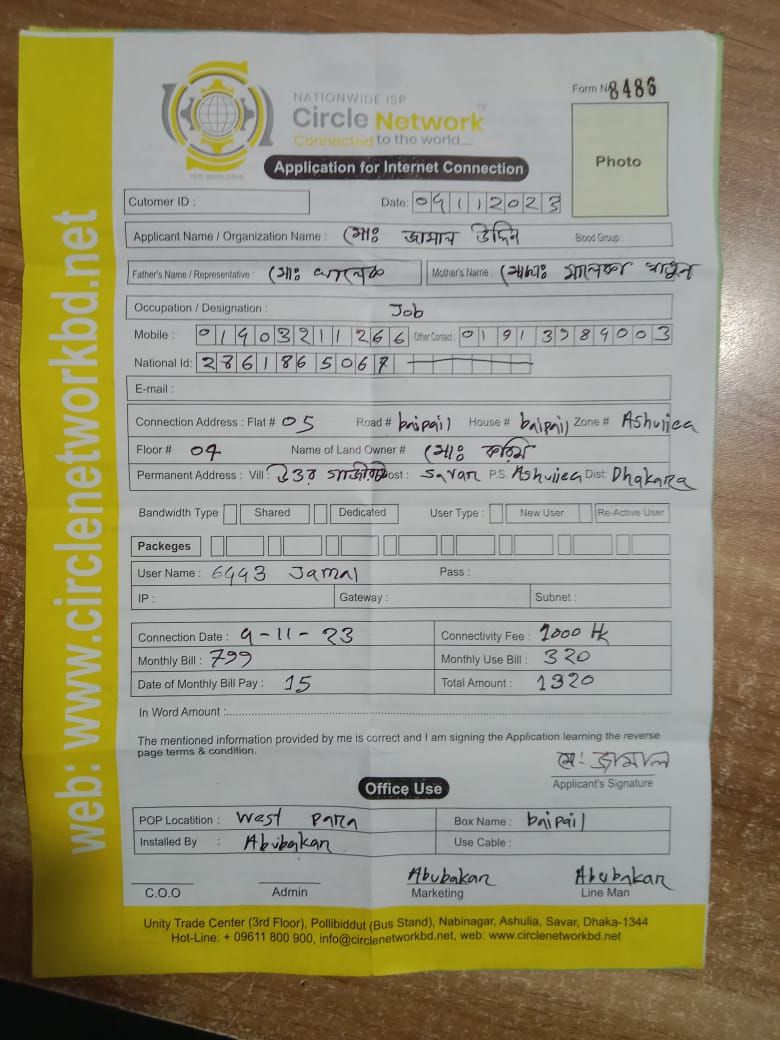 NATIONWIDE ISP
Circle Network
Connected to the world....
ISO 9001:2015
Form No 8486
Photo
Application for Internet Connection
Cutomer ID :
Date: 09112023
Applicant Name / Organization Name : মোঃ জামাল উদ্দিন Blood Group :
Father's Name / Representative : মোঃ খালেক Mother's Name : মোছাঃ মালেকা খাতুন
Occupation / Designation : Job
Mobile : 01903211266 Other Contact : 01913989003
National Id: 2861865067
E-mail :
Connection Address : Flat # 05 Road # baipail House # baipail Zone # Ashuliea
Floor # 04 Name of Land Owner # মোঃ করিম
Permanent Address : Vill : উত্তর Post : Savar P.S. Ashuliea Dist: Dhakara
Bandwidth Type Shared Dedicated User Type : New User Re-Active User
Packeges
User Name : 6493 Jamal Pass :
IP : Gateway : Subnet :
Connection Date : 9-11-23 Connectivity Fee : 1000 tk
Monthly Bill : 799 Monthly Use Bill : 320
Date of Monthly Bill Pay : 15 Total Amount : 1320
In Word Amount :
The mentioned information provided by me is correct and I am signing the Application learning the reverse
page terms & condition.
মো: জামাল
Applicant's Signature
Office Use
POP Locatition : West Para Box Name : baipail
Installed By : Abubakar Use Cable :
Abubakar Abubakar
C.O.O Admin Marketing Line Man
Unity Trade Center (3rd Floor), Pollibiddut (Bus Stand), Nabinagar, Ashulia, Savar, Dhaka-1344
Hot-Line: + 09611 800 900, info@circlenetworkbd.net, web: www.circlenetworkbd.net
web: www.circlenetworkbd.net